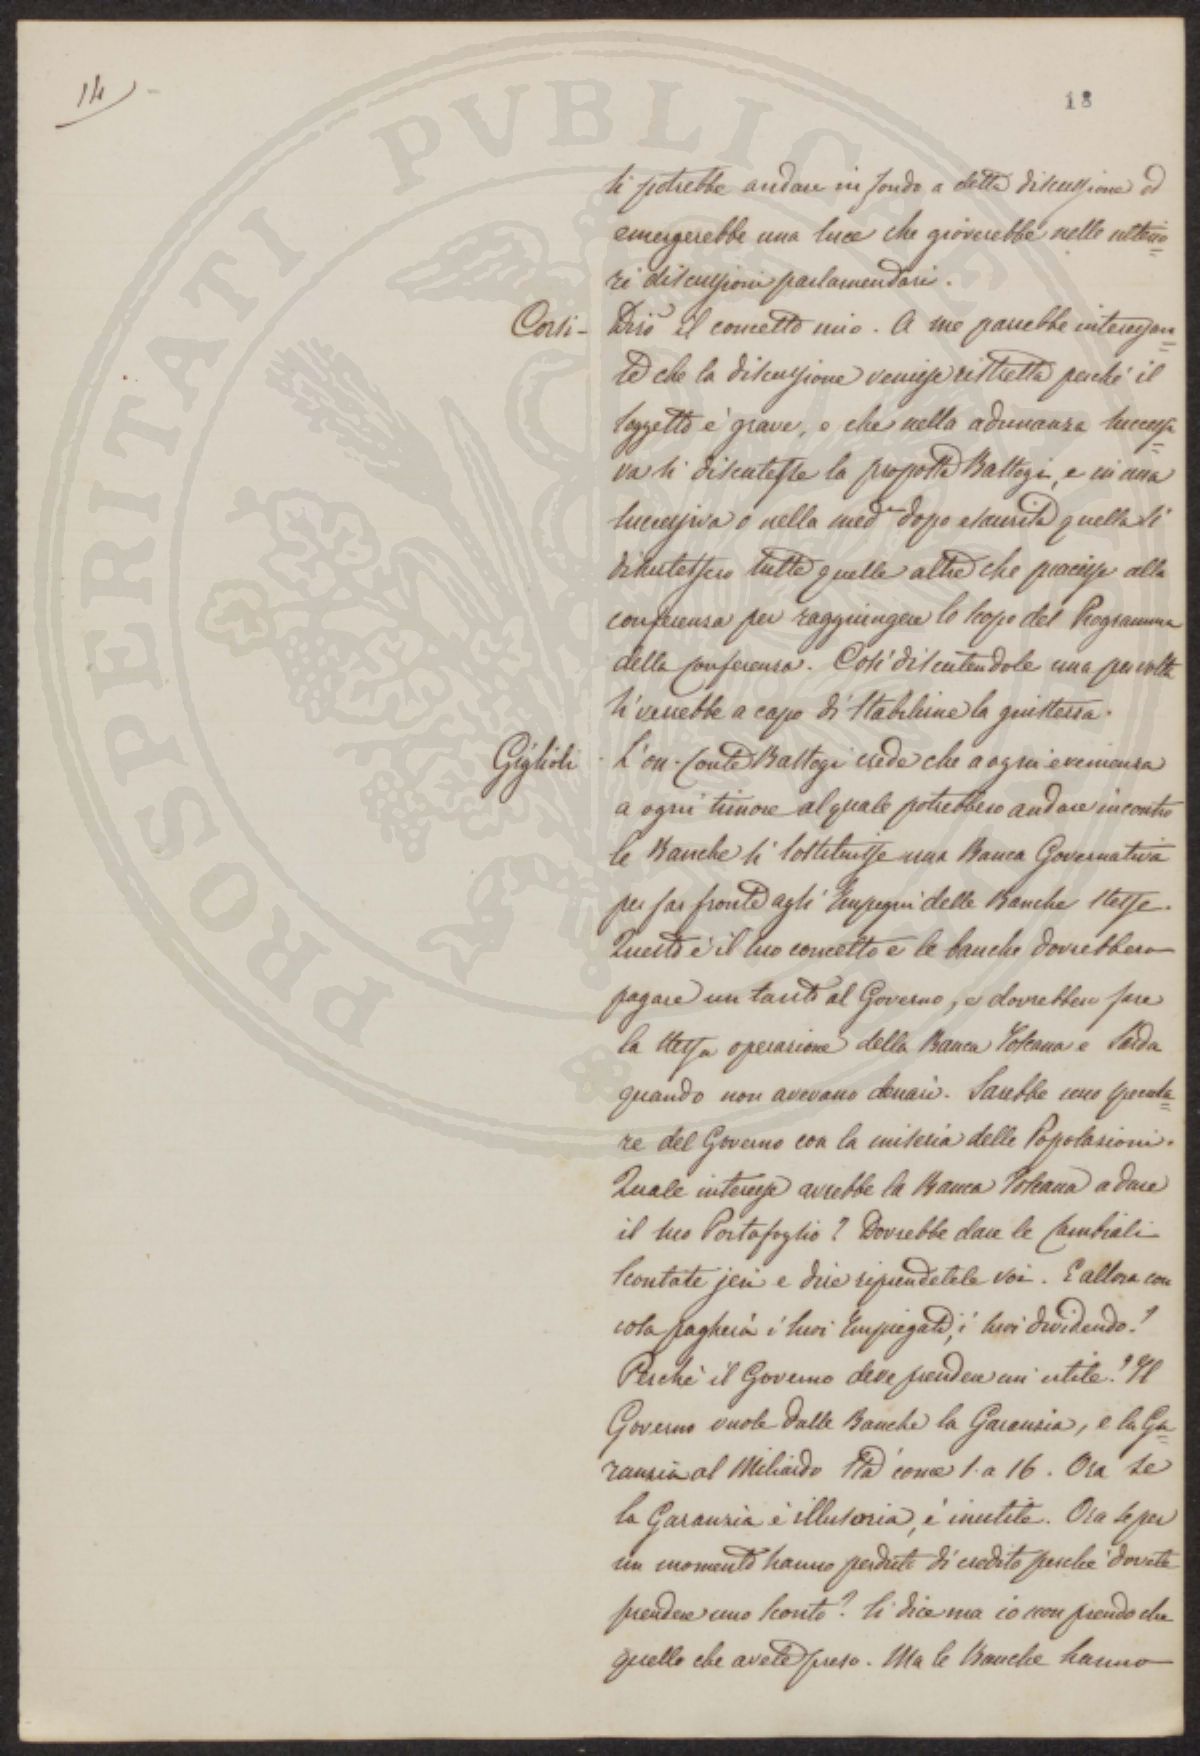 14
18
si potrebbe andare in fondo a detta discussione ed
emergerebbe una luce che gioverebbe nelle ulterio=
ri discussioni parlamentari.
Corsi - Dirò il concetto mio. A me parrebbe interessan=
te che la discussione venisse ristretta perché il
soggetto è grave, e che nella adunanza successi=
va si discutesse la proposta Bastogi, e in una
successiva o nella med.ª dopo esaurita quella si
discutessero tutte quelle altre che piacesse alla
conferenza per raggiungere lo scopo del Programma
della conferenza. Così discutendole una per volta
si verrebbe a capo di stabilirne la giustezza.
Giglioli - L'on. Conte Bastogi crede che a ogni evenienza
a ogni timore al quale potrebbero andare incontro
le Banche si sostituisse una Banca Governativa
per far fronte agli Impegni delle Banche stesse.
Questo è il suo concetto e le banche dovrebbero
pagare un tanto al Governo, e dovrebbero fare
la stessa operazione della Banca Toscana e Sarda
quando non avevano denari. Sarebbe uno specula=
re del Governo con la miseria delle Popolazioni.
Quale interesse avrebbe la Banca Toscana a dare
il suo Portafoglio? Dovrebbe dare le Cambiali
scontate jeri e dire riprendetele voi. E allora con
cosa pagherà i suoi Impiegati, i suoi dividendo?
Perché il Governo deve prendere un utile? Il
Governo vuole dalle Banche la Garanzia, e la Ga=
ranzia al Miliardo sta come 1. a 16. Ora se
la Garanzia è illusoria, è inutile. Ora se per
un momento hanno perduto di credito perché dovete
prendere uno sconto? Si dice ma io non prendo che
quello che avete preso. Ma le Banche hanno
PROSPERITATI PVBLICAE